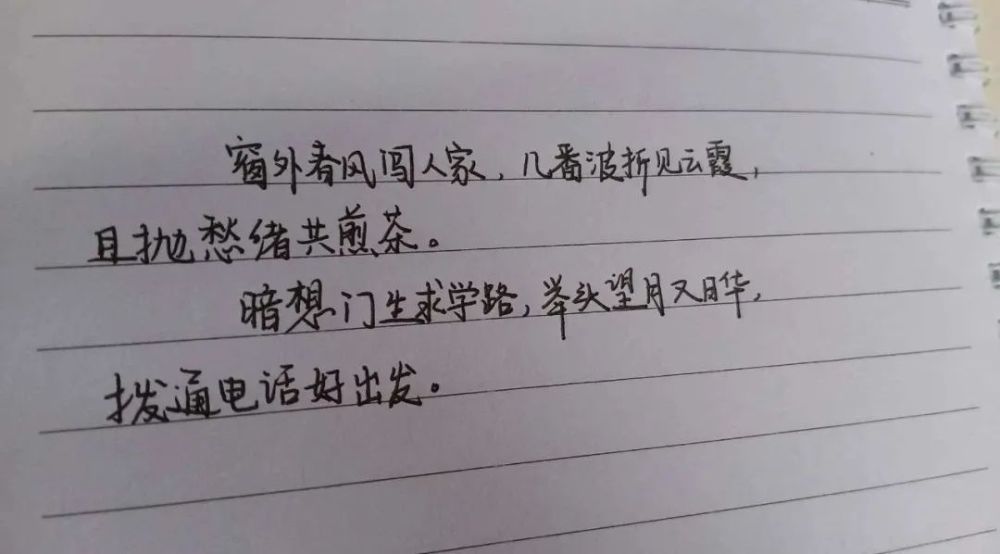 窗外春风闯人家，几番波折见云霞，
且抛愁绪共煎茶。
暗想门生求学路，举头望月又日华，
拨通电话好出发。